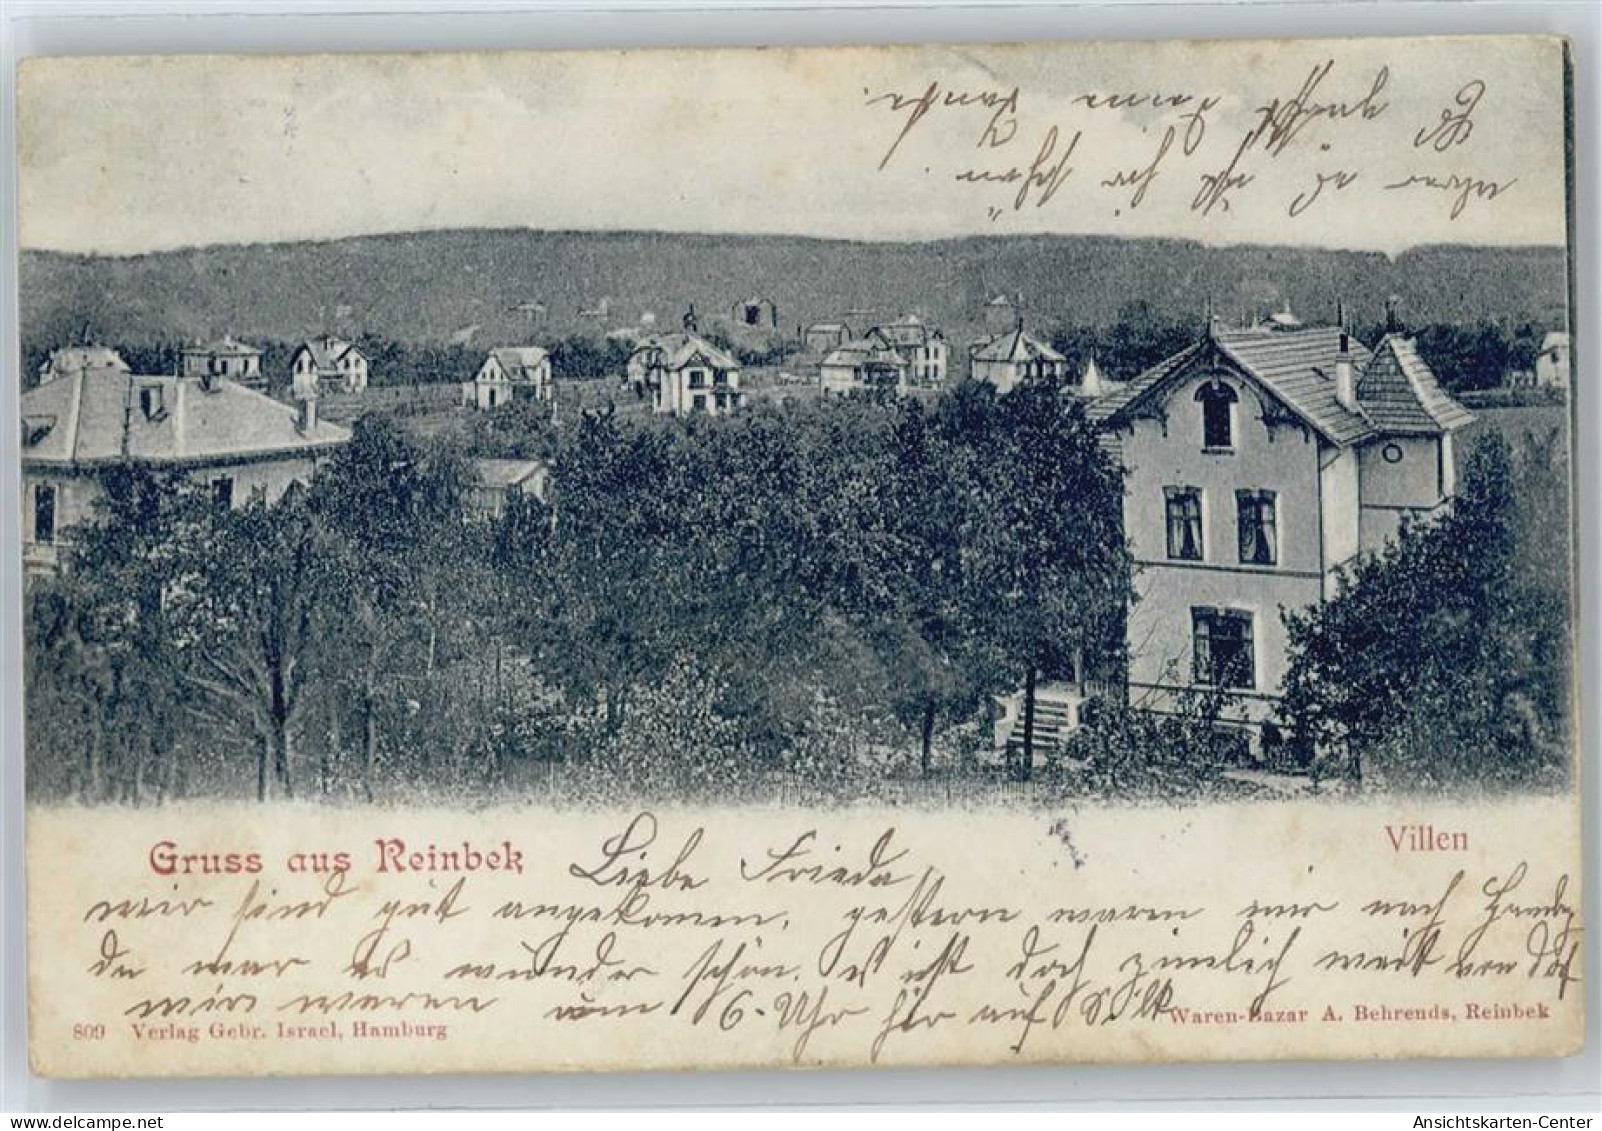 Gruss aus Reinbek
Villen
Liebe Frieda
wir sind gut angekommen, gestern waren wir nach
da war es wunder schön. es ist doch zimlich weit von
wir waren um 6 Uhr hir auf
809 Verlag Gebr. Israel, Hamburg
Waren-Bazar A. Behrends, Reinbek
war es ist hir schön.
Es grüßt Deine Tante
Ansichtskarten-Center